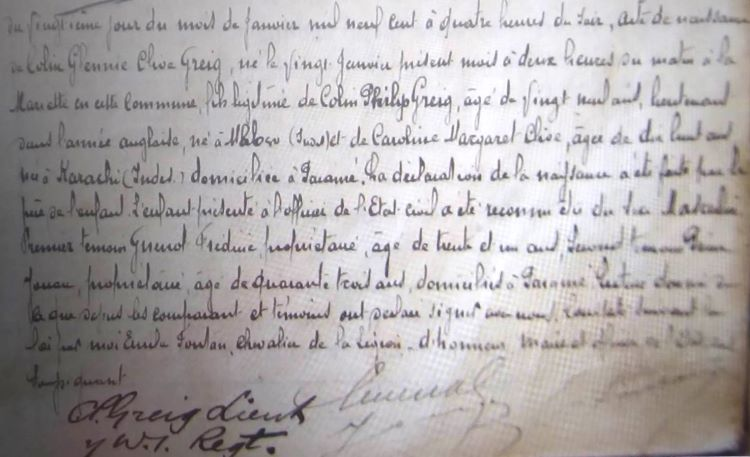 du vingtième jour du mois de Janvier mil neuf cent à quatre heures du soir, acte de naissance
de Colin Glennie Clive Greig, né le vingt Janvier présent mois à deux heures du matin à la
Mariette en cette commune, fils légitime de Colin Philip Greig, âgé de vingt neuf ans, lieutenant
dans l'armée anglaise, né à (Indes) et de Caroline Margaret Clive, âgée de dix huit ans
née à Karachi (Indes) domiciliée à Paramé. La déclaration de la naissance a été faite par le
père de l'enfant. L'enfant présenté à l'officier de l'Etat civil a été reconnu être du sexe Masculin
Premier témoin Guenot Frédéric, propriétaire, âgé de trente et un ans, Second témoin
propriétaire, âgé de quarante trois ans, domiciliés à Paramé. Lecture donnée de
ce que dessus les comparant et témoins ont déclaré signer avec nous. Constaté suivant la
loi par moi Emile Fontan, chevalier de la Légion d'honneur Maire et officier de l'Etat civil
soussignant
C.P. Greig Lieut
W.I. Regt.